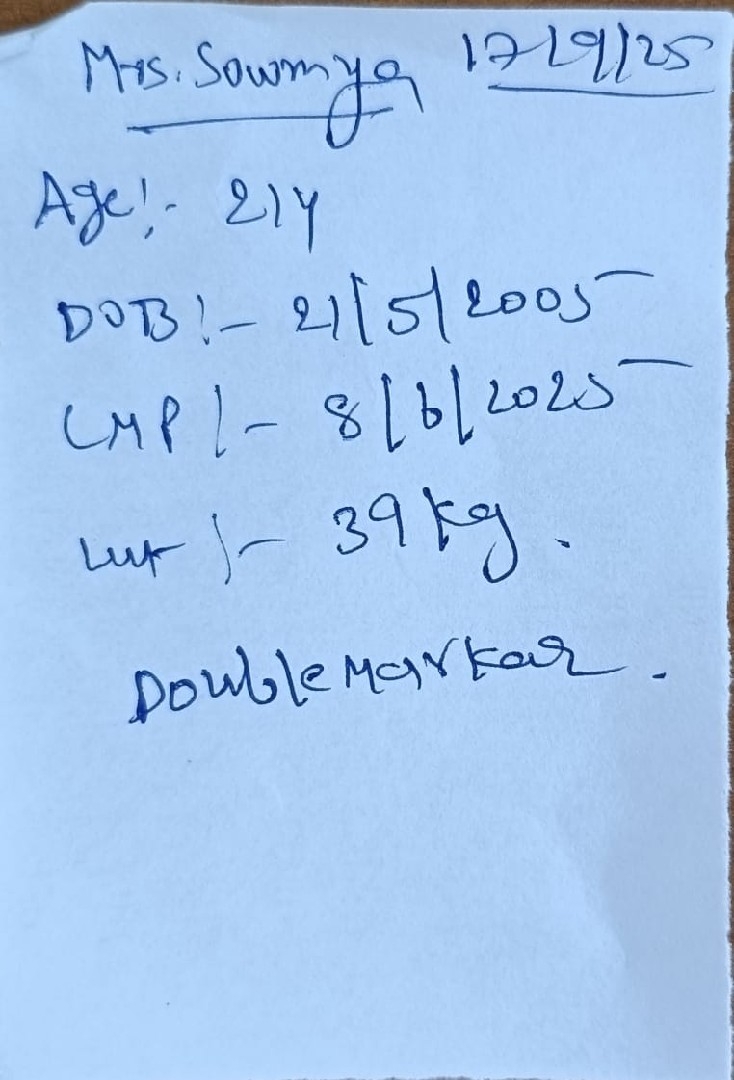 Mrs. Sowmya 17/9/25
Age:- 21y
DOB:- 21/5/2005
LMP:- 8/6/2025
wt:- 39 kg.
Double Markar.